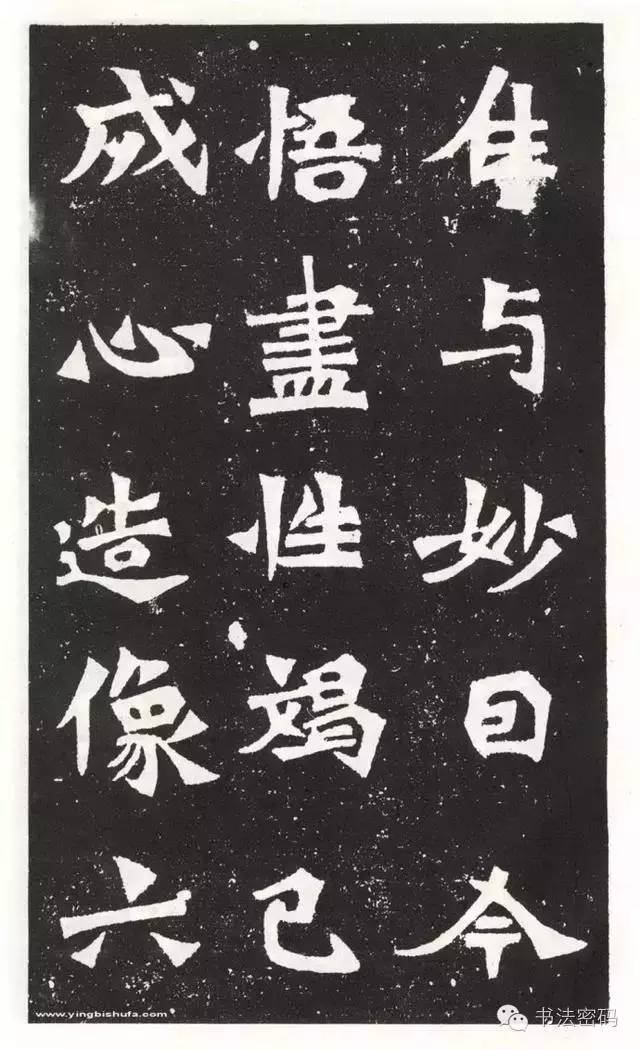 隹与妙曰今
悟盡性竭己
心造像六
www.yingbishufa.com
书法密码